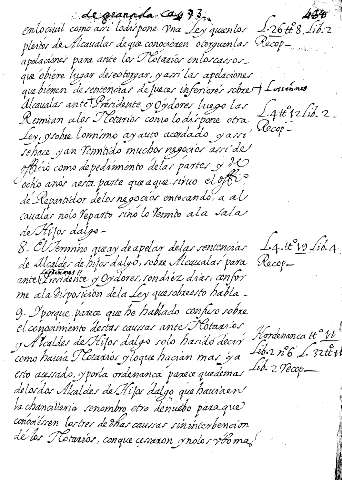 de granada Cap. 73.
en lo civil como assi lo dispone Una Ley que en los L. 26 tt.º 8. Lib. 2
pleitos de Alcavalas de que conocieren otorguen las Recop.
apelaciones para ante los Notarios en los casos
que obiere lugar de se otorgar, y assi las apelaciones
que bienen de sentencias de Jueces inferiores sobre
Alcavalas ante Presidente y Oydores luego las
Remiten a los Notarios como lo dispone otra L. 4 tt.º 12 Lib. 2
Ley, y sobre lo mismo ay auto acordado, y assi Recop.
se an Remitido muchos negocios assi de
officio como de pedimento de las partes, y de
ocho años a esta parte que a que sirvo el offiº
de Repartidor de los negocios en tocando a al
cavalas no lo Reparto sino lo Remito a la Sala
de Hijos dalgo.
8. El termino que ay de apelar de las sentencias L. 4. tt.º 19 Lib. 4
de Alcaldes de hijos dalgo, sobre Alcavalas para Recop.
ante Presidente y Oydores, son diez dias, confor
me a la disposicion de la Ley que sobre esto habla.
9. Y porque parece que he hablado confuso sobre
el conocimiento destas causas ante Notarios, Hordenança tt.º 11
y Alcaldes de Hijos dalgo solo han de decir Lib. 2 nº 6 L. 32 tt.º 11
como havia Notarios y lo que hacian mas ya Lib. 2 Recop.
esto a cesado, y por la ordenanza parece que demas
de los dos Alcaldes de Hijos dalgo que havia en
la chancilleria se nombro, otro de nuebo para que
conociessen los tres de dhas causas sin interbencion
de los Notarios, con que cesaron, y no los ay